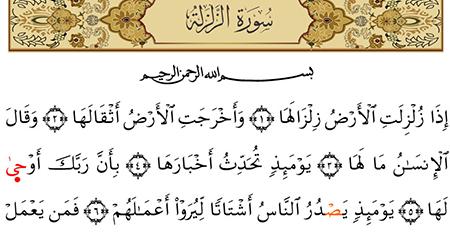 سُورَةُ الزَّلْزَلَةِ
بِسْمِ اللَّهِ الرَّحْمَٰنِ الرَّحِيمِ
إِذَا زُلْزِلَتِ ٱلْأَرْضُ زِلْزَالَهَا ﴿١﴾ وَأَخْرَجَتِ ٱلْأَرْضُ أَثْقَالَهَا ﴿٢﴾ وَقَالَ
ٱلْإِنسَٰنُ مَا لَهَا ﴿٣﴾ يَوْمَئِذٍ تُحَدِّثُ أَخْبَارَهَا ﴿٤﴾ بِأَنَّ رَبَّكَ أَوْحَىٰ
لَهَا ﴿٥﴾ يَوْمَئِذٍ يَصْدُرُ ٱلنَّاسُ أَشْتَاتًا لِّيُرَوْا۟ أَعْمَٰلَهُمْ ﴿٦﴾ فَمَن يَعْمَلْ